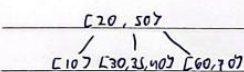 [20, 50]
[10] [30,35,40] [60,70]